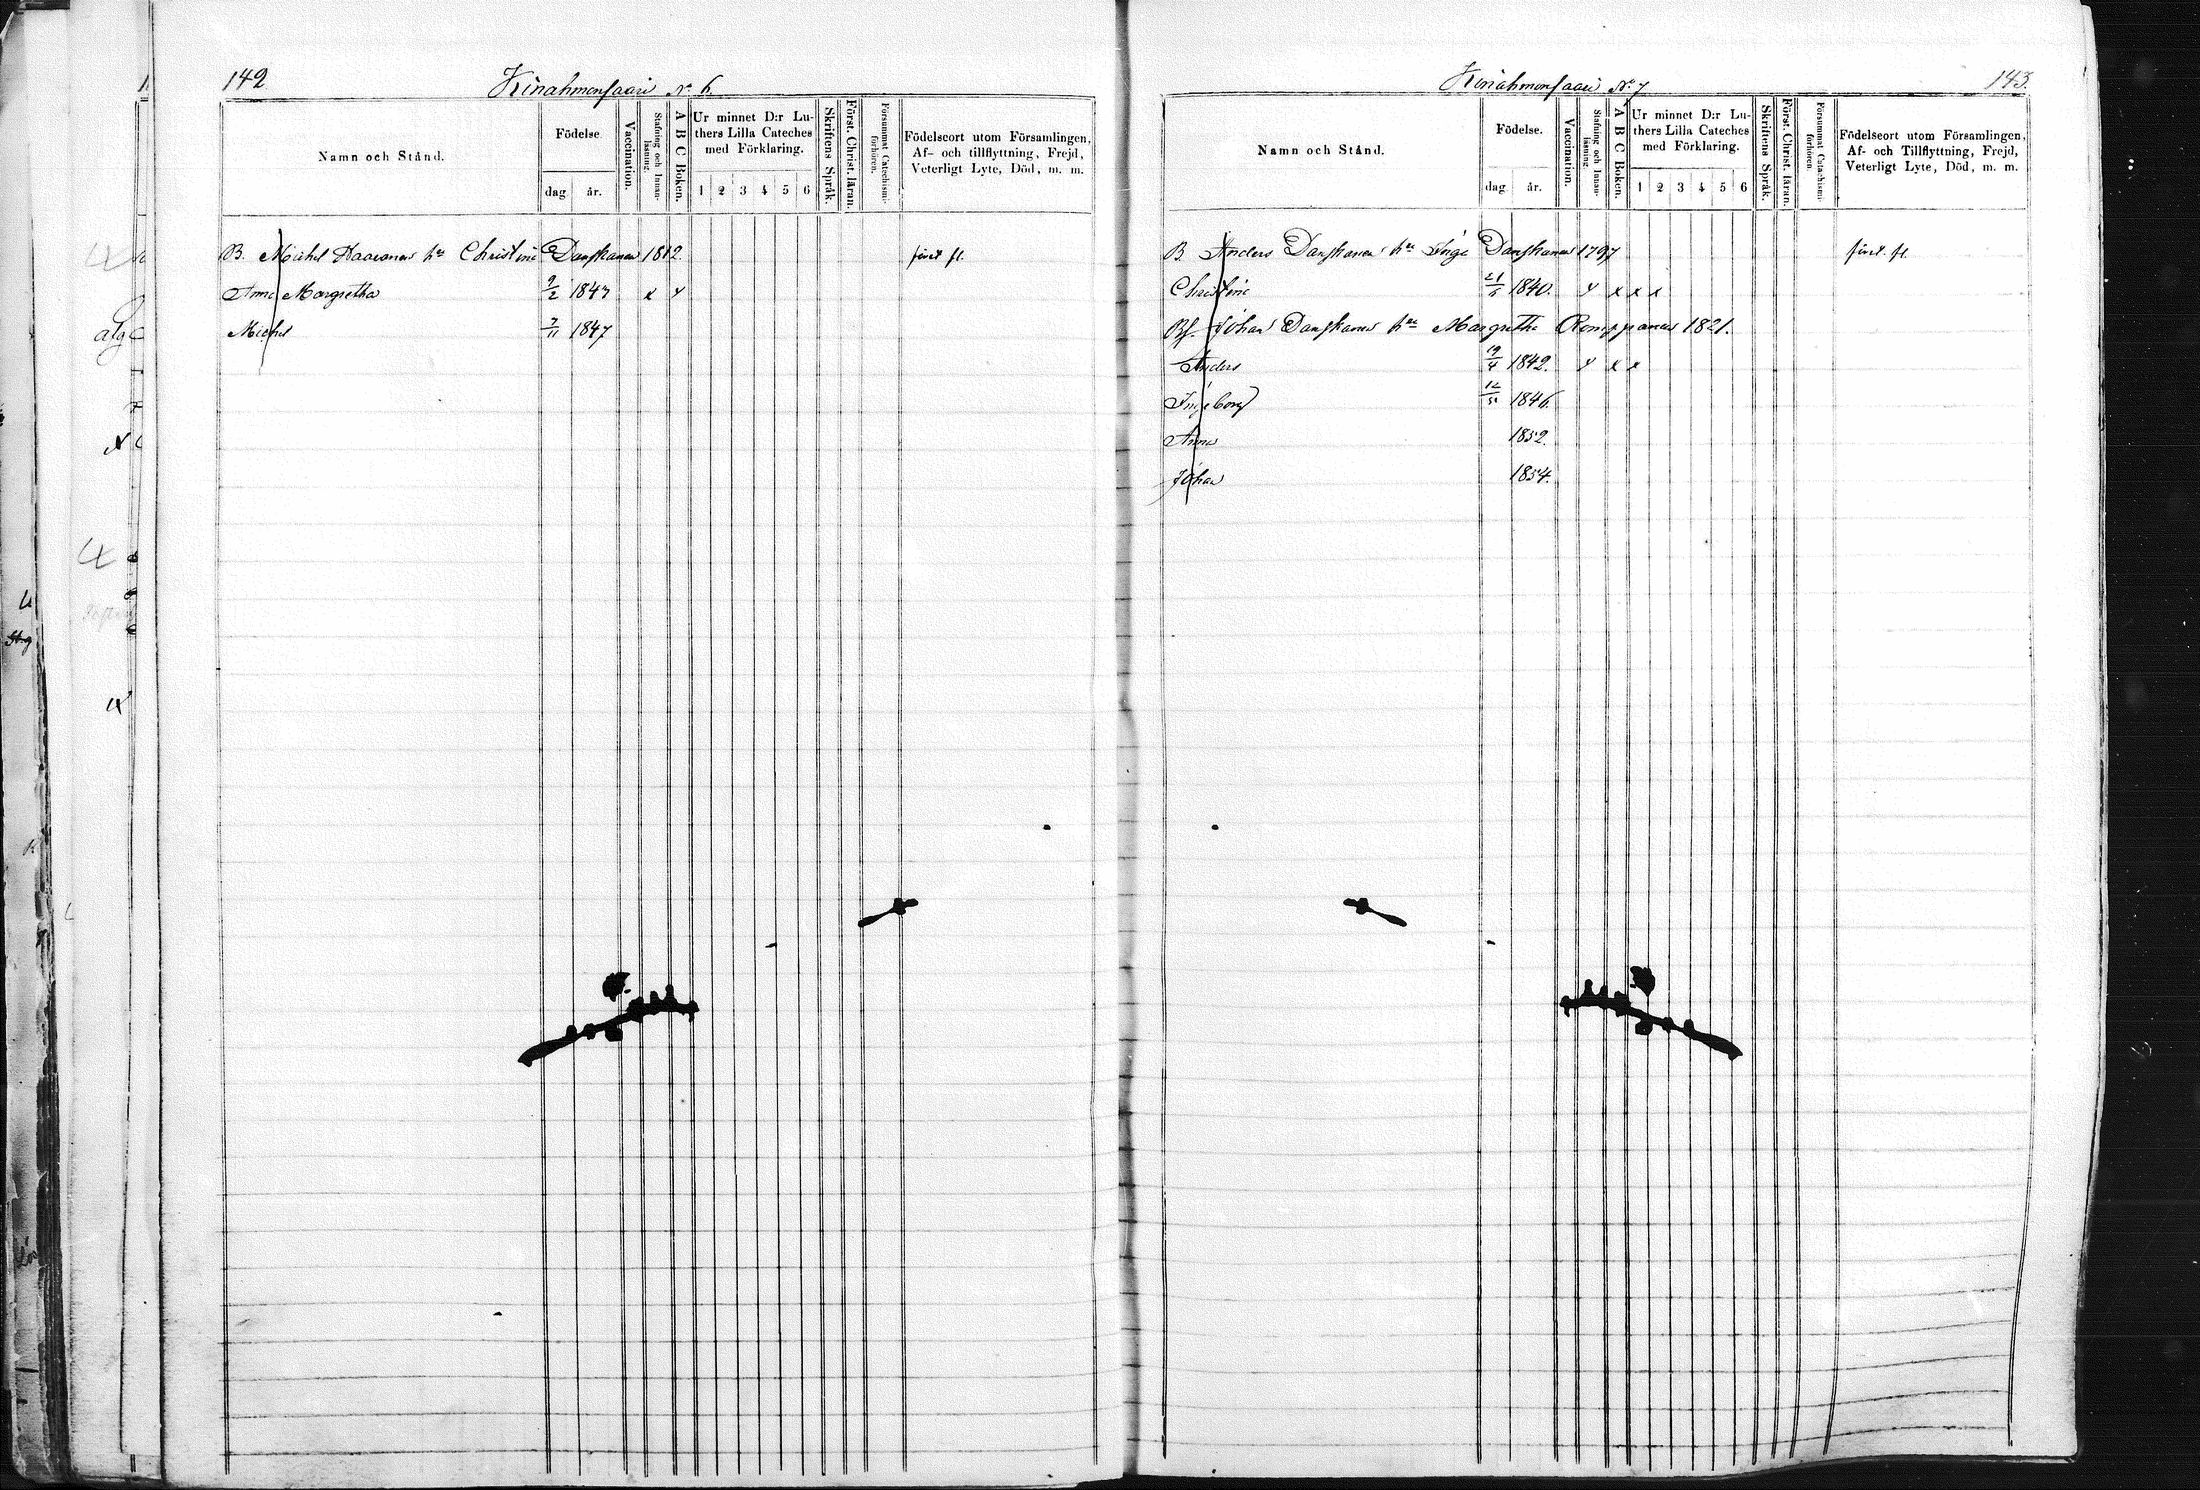 142
Kinahmonsaari No 6.
Namn och Stånd.
Födelse
dag
år.
Vaccination.
Stafning och Innan-
läsning.
A B C Boken.
Ur minnet D:r Lu-
thers Lilla Cateches
med Förklaring.
1 2 3 4 5 6
Skriftens Språk.
Först. Christ. läran.
Försummat Catechismi-
förhören.
Födelseort utom Församlingen,
Af- och tillflyttning, Frejd,
Veterligt Lyte, Död, m. m.
B. Michel Haaranen hu Christina Danskanen 1812.
Anna Margretha 9/2 1843 x x
Michel 7/11 1847
Kinahmonsaari No 7
143.
Namn och Stånd.
Födelse.
dag
år.
Vaccination.
Stafning och Innan-
läsning.
A B C Boken.
Ur minnet D:r Lu-
thers Lilla Cateches
med Förklaring.
1 2 3 4 5 6
Skriftens Språk.
Först. Christ. läran.
Försummat Catechismi-
förhören.
Födelseort utom Församlingen,
Af- och Tillflyttning, Frejd,
Veterligt Lyte, Död, m. m.
B Anders Danskanen hu Inga Danskanen 1797
Christina 1840. x x x x
Johan Danskanen hu Margretha Romppanen 1821.
Anders 19/4 1842. x x x
Ingeborg 1846.
Anna 1852.
Johan 1854.